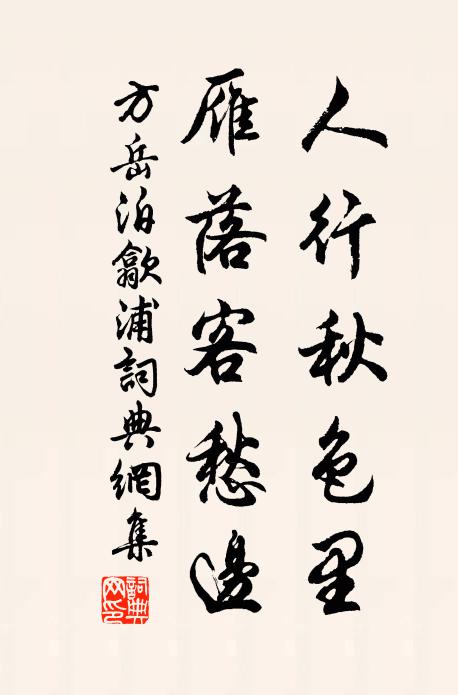 人行秋色里
雁落客愁邊
方岳泊歙浦詞典網集
詞典网印